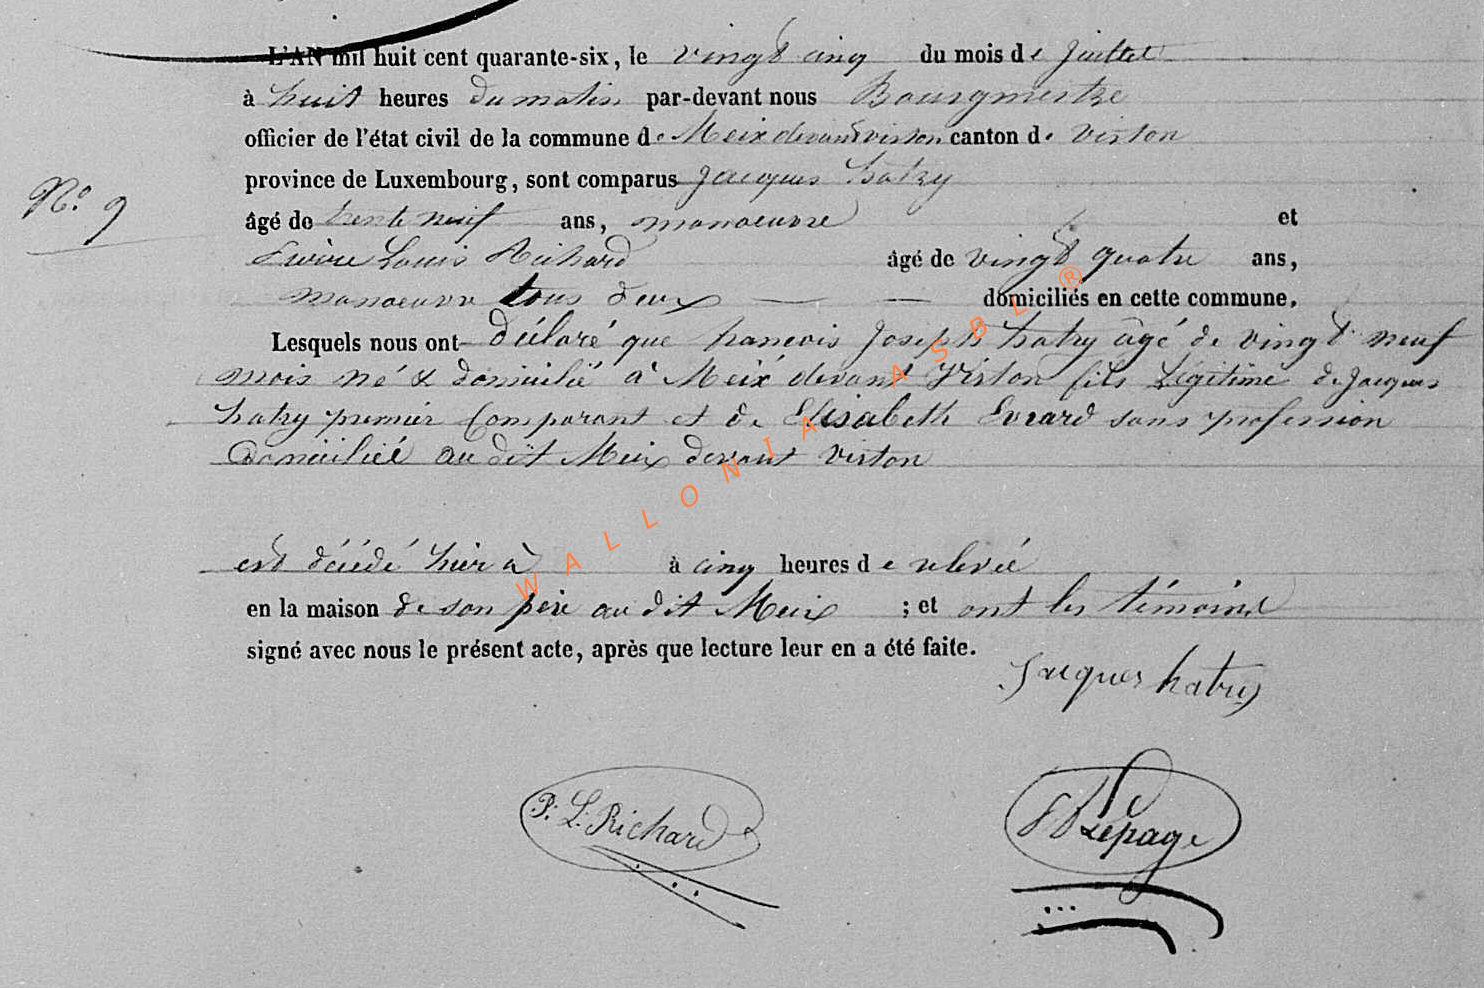 L'AN mil huit cent quarante-six, le vingt cinq du mois de juillet
à huit heures du matin par-devant nous Bourgmestre
officier de l'état civil de la commune de Meix devant virton canton de virton
province de Luxembourg, sont comparus Jacques hatry
N.º 9
âgé de trente neuf ans, manoeuvre et
Pierre Louis Richard âgé de vingt quatre ans,
manoeuvre tous deux — — domiciliés en cette commune.
Lesquels nous ont déclaré que francois Joseph hatry âgé de vingt neuf
mois né & domicilié à Meix devant Virton fils Légitime de Jacques
hatry premier Comparant et de Elisabeth Evrard sans profession
Domiciliée au dit Meix devant virton
est décédé hier à à cinq heures de relevée
en la maison de son père au dit Meix ; et ont les témoins
signé avec nous le présent acte, après que lecture leur en a été faite.
Jacques hatry
P. L. Richard
Lepage
WALLONIA ASBL ®